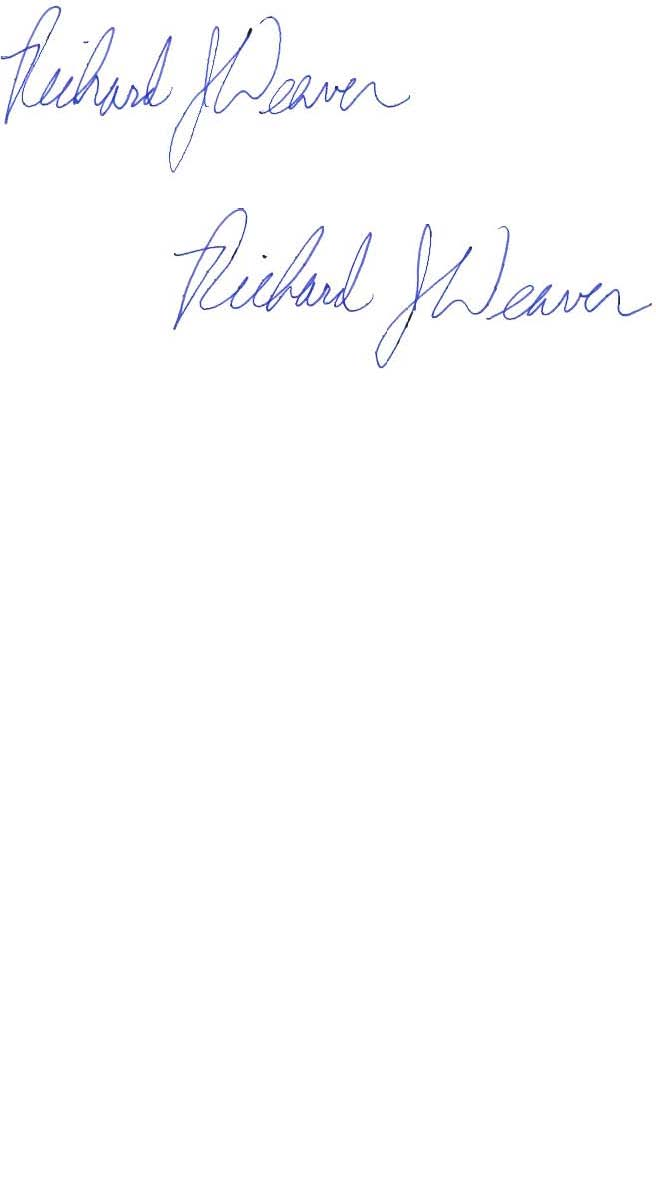 Richard J Weaver
Richard J Weaver